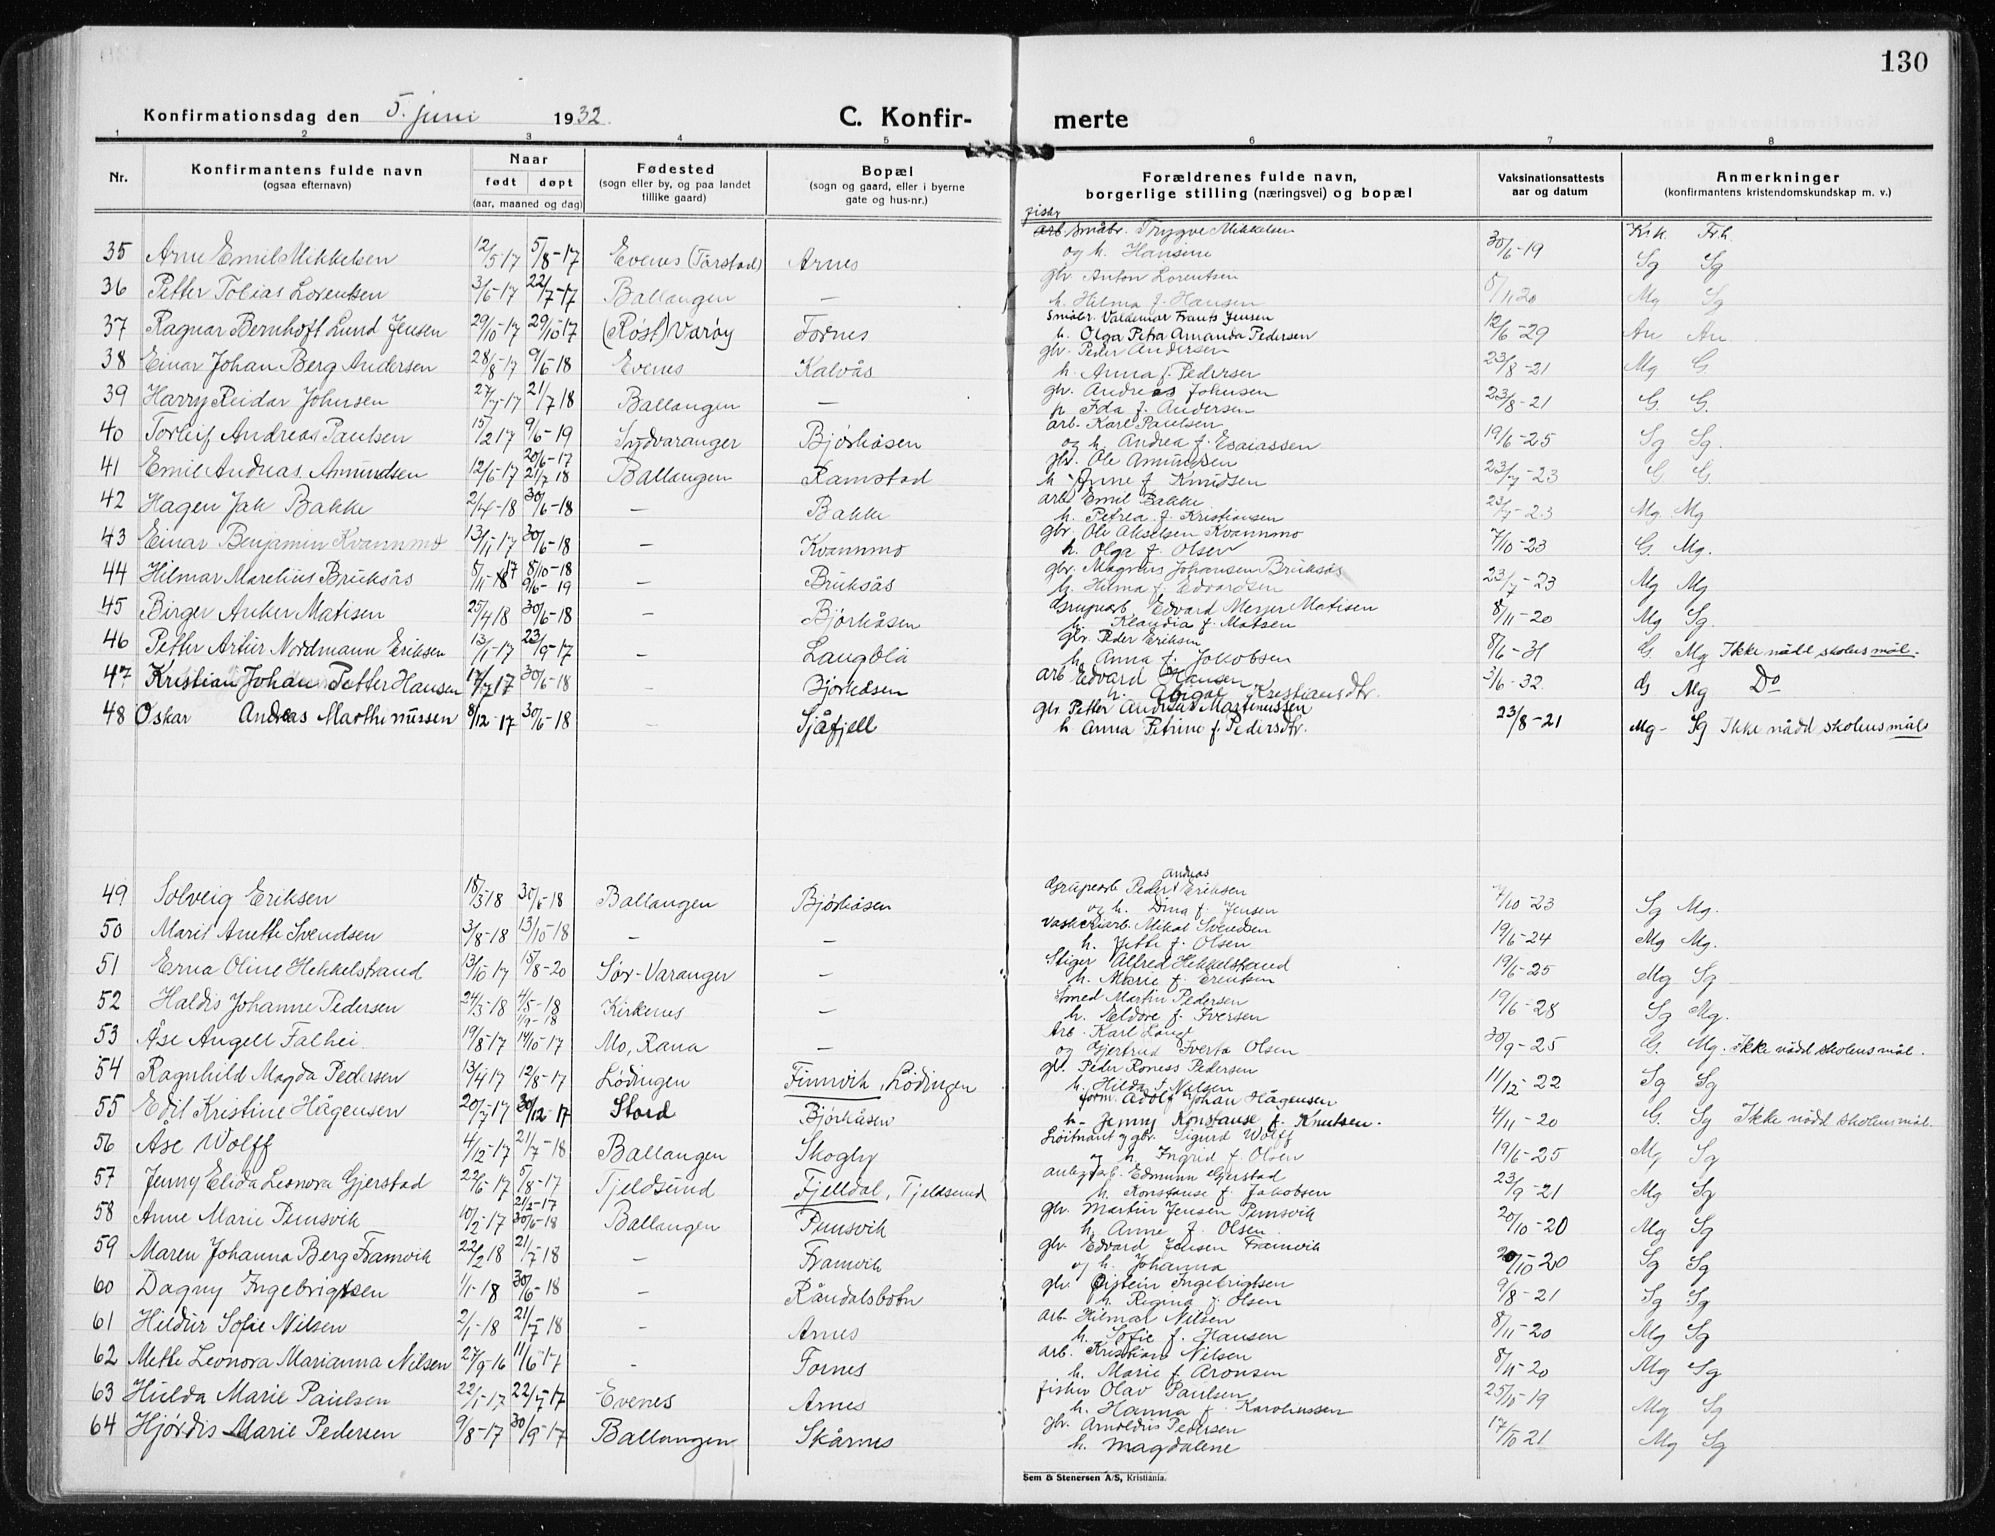 130
Konfirmationsdag den 5. juni 1932. C. Konfir- merte
1 2 3 4 5 6 7 8
Nr. Konfirmantens fulde navn (ogsaa efternavn) Naar født døpt (aar, maaned og dag) Fødested (sogn eller by, og paa landet tillike gaard) Bopæl (sogn og gaard, eller i byerne gate og hus-nr.) Forældrenes fulde navn, borgerlige stilling (næringsvei) og bopæl Vaksinationsattests aar og datum Anmerkninger (konfirmantens kristendomskundskap m. v.)
fisker
35 Arne Emil Mikkelsen 12/5-17 5/8-17 Evenes (Tårstad) Arnes arb småbr. Trygve Mikkelsen og h. Hansine 30/6-19 Krk. Frh. Sg Sg
36 Petter Tobias Lorentsen 3/6-17 22/7-17 Ballangen — gbr Anton Lorentsen h. Hilma f. Hansen 8/11 20 Mg Sg
37 Ragnar Bernhoft Lund Jensen 29/10-17 29/10-17 (Røst) Værøy Fornes Småbr. Valdemar Frants Jensen h. Olga Petra Amanda Pedersen 12/6-29 An An
38 Einar Johan Berg Andersen 28/8-17 9/6-18 Evenes Kalvås gbr. Peder Andersen h. Anna f. Pedersen 23/8-21 Mg G.
39 Harry Reidar Johnsen 27/7-17 21/7 18 Ballangen — gbr. Andreas Johnsen h Ida f. Andersen 23/8-21 G. G.
40 Torleif Andreas Paulsen 15/2 17 9/6-19 Sydvaranger Bjørkåsen arb. Karl Paulsen og h. Andrea f. Esaiassen 19/6-25 Sg Sg.
41 Emil Andreas Amundsen 12/6-17 20/6-17 21/7 18 Ballangen Ramstad gbr. Ole Amundsen h. Anne f. Knudsen 23/7-23 G G.
42 Hagen Jak Bakke 2/4-18 30/6-18 — Bakke arb. Emil Bakke h. Petrea f. Kristiansen 23/7-23 Mg. Mg
43 Einar Benjamin Kvannmo 13/11-17 30/6-18 — Kvannmo gbr. Ole Akselsen Kvannmo h. Olga f. Olsen 7/10-23 G. Mg.
44 Hilmar Marelius Bruksås 8/11-18 17 8/10-18 9/6-19 — Bruksås gbr. Magnus Johansen Bruksås h. Hilma f. Edvardsen 23/7-23 Mg Mg
45 Birger Anker Matisen 25/4 18 30/6-18 — Bjørkåsen Grubearb. Edvard Meyer Matisen h. Klaudia f. Matsen 8/11-20 Mg Sg.
46 Petter Artur Nordmann Eriksen 13/1-17 23/9-17 — Langblå gbr. Peder Eriksen h. Anna f. Jakobsen 8/6-31 G. Mg Ikke nådd skolens mål.
47 Kristian Johan Petter Hansen 17/7 17 30/6-18 — Bjørkåsen arb Edvard Hansen h. Abigal Kristiansdtr. 3/6-32. G Mg Do
48 Oskar Andreas Marthinussen 8/12-17 30/6-18 — Sjåfjell gbr Petter Andreas Martenussen h Anna Petrine f. Pedersdtr. 23/8-21 Mg- Sg Ikke nådd skolens mål
49 Solveig Eriksen 18/3 18 30/6-18 Ballangen Bjørkåsen Grubearb Peder Andreas Eriksen og h. Dina f. Jensen 7/10-23 Sg Mg.
50 Marit Anette Svendsen 3/8-18 13/10-18 — — Vaskeriarb. Mikal Svendsen h. Jette f. Olsen 19/6-24 Mg Mg.
51 Erna Oline Hekkelstrand 13/10 17 15/8-20 Sør-Varanger — Stiger Alfred Hekkelstrand h. Marie f. Eriksen 19/6-25 Mg Sg
52 Haldis Johanne Pedersen 24/3-18 4/5-18 1/9-18 Kirkenes — Smed Martin Pedersen h. Eldore f. Iversen 19/6-28 Sg Mg.
53 Åse Angell Falhei. 19/8-17 14/10-17 Mo, Rana — Arb. Karl Lange og Gjertrud Iverta Olsen 30/9-25 G. Mg. Ikke nådd skolens mål.
54 Ragnhild Magda Pedersen 13/4 17 12/8-17 Lødingen Finnvik, Lødingen gbr. Peder Roness Pedersen h. Hilda f. Nilsen 11/12-22 Sg Sg
55 Edil Kristine Hågensen 20/7-17 30/12-17 Stord Bjørkåsen form. Adolf Johan Hågensen h. Jenny Konstanse f. Knutsen. 4/11-20 G. Sg Ikke nådd skolens mål.
56 Åse Wolff 4/12-17 21/7-18 Ballangen Skogly Løitnant og gbr. Sigurd Wolff og h. Ingrid f. Olsen 19/6-25 Mg Sg
57 Jenny Elida Leonora Gjerstad 22/6-17 5/8-17 Tjeldsund Fjelldal, Tjeldsund anlegsarb. Edmund Gjerstad h. Konstanse f. Jakobsen 23/9-21 Mg Sg
58 Anne Marie Pundsvik 10/2-17 21/2-17 30/6-18 Ballangen Pundsvik gbr. Martin Jensen Pundsvik h. Anne f. Olsen 20/10-20 Mg Sg
59 Maren Johanna Berg Framvik 22/2 18 21/7-18 — Framvik gbr. Edvard Jensen Framvik og h. Johanna 20/10-20 Sg Sg
60 Dagny Ingebrigtsen 1/1-18 30/6-18 — Råndalsbotn gbr. Øistein Ingebrigtsen h. Regina f. Olsen 9/8-21 Sg Sg
61 Hildur Sofie Nilsen 2/1-18 21/7-18 — Arnes arb. Hilmar Nilsen h. Sofie f. Hansen 8/11-20 Mg Sg
62 Mette Leonora Marianna Nilsen 27/9-16 11/6 17 - Fornes arb. Kristian Nilsen h. Marie f Aronsen 8/11-20 Mg Sg
63 Hulda Marie Paulsen 22/1-17 22/7-17 Evenes Arnes fisker Olav Paulsen h. Hanna f. Karoliussen 25/10-19 Mg Sg
64 Hjørdis Marie Pedersen 9/8-17 30/9-17 Ballangen Skårnes gbr. Arnoldus Pedersen h. Magdalene 17/10 21 Mg Sg
Sem & Stenersen A/S, Kristiania.